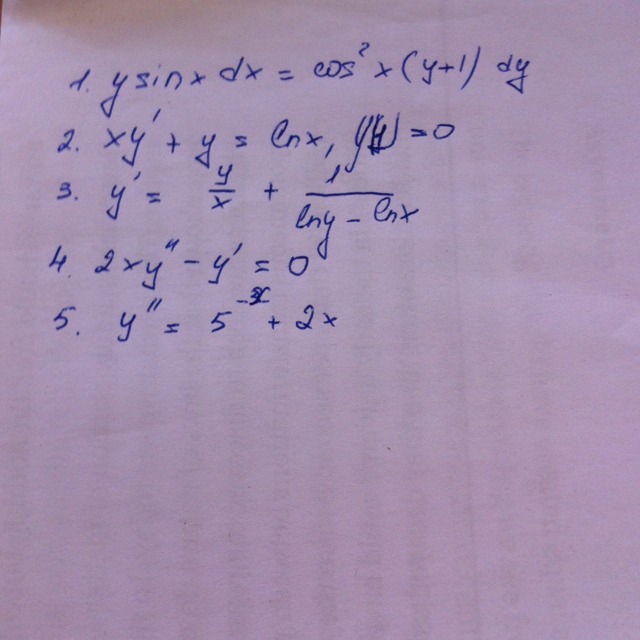 1. y sin x dx = cos² x (y+1) dy
2. xy' + y = ln x, y(1) = 0
3. y' = y/x + 1/(ln y - ln x)
4. 2xy'' - y' = 0
5. y'' = 5^(-x) + 2x